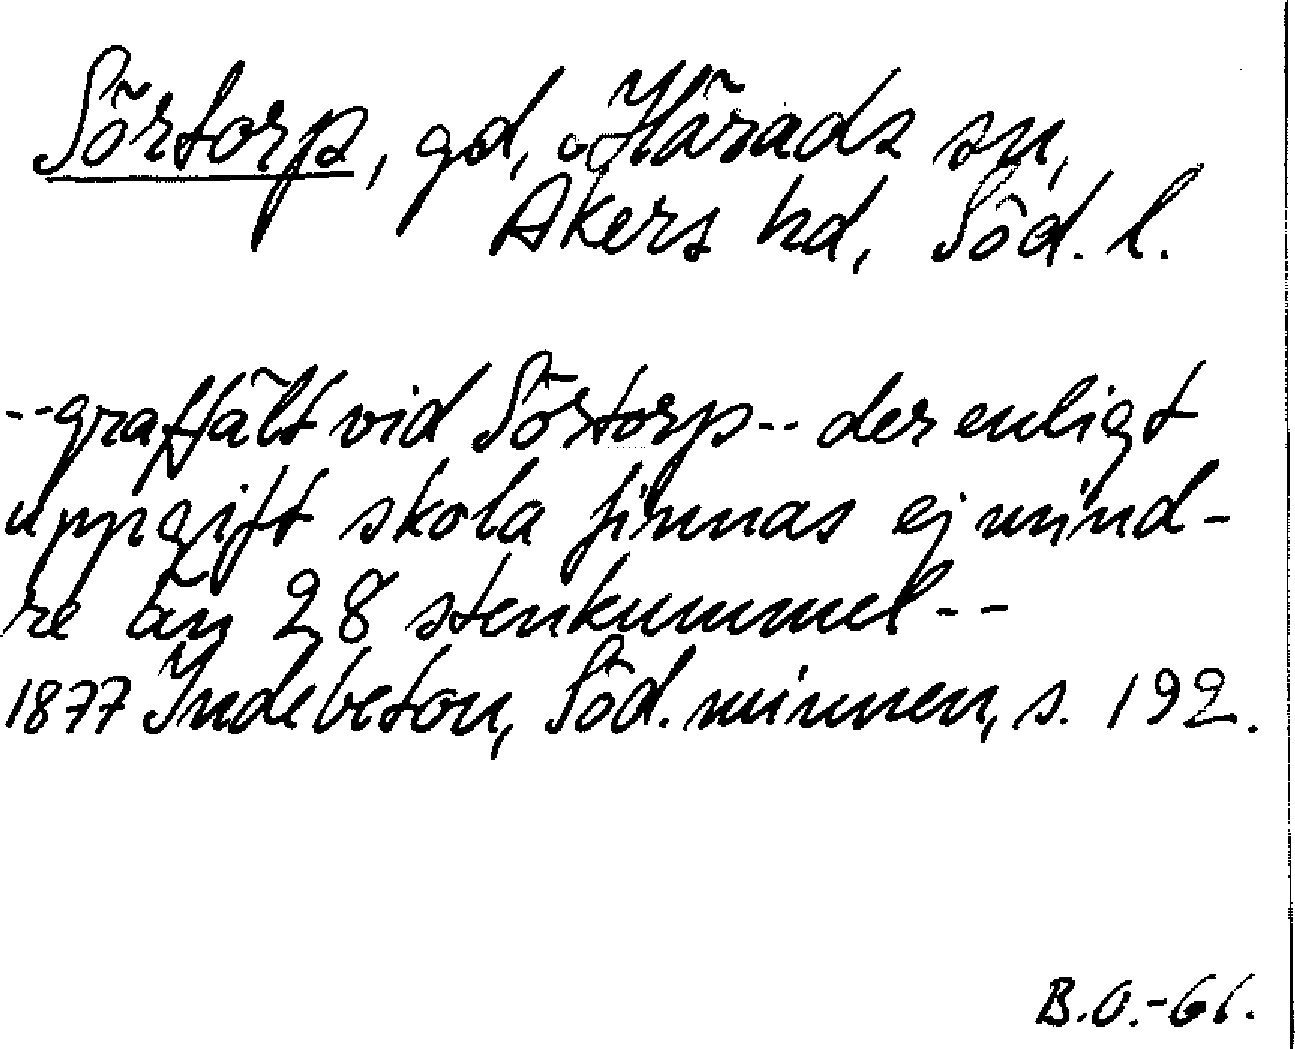 Sörtorp, gd, Härads sn,
Åkers hd, Söd. l.
--graffält vid Sörtorp-- der enligt
uppgift skola finnas ej mind-
re än 28 stenkummel--
1877 Indebetou, Söd. minnen, s. 192.
B.O.-61.